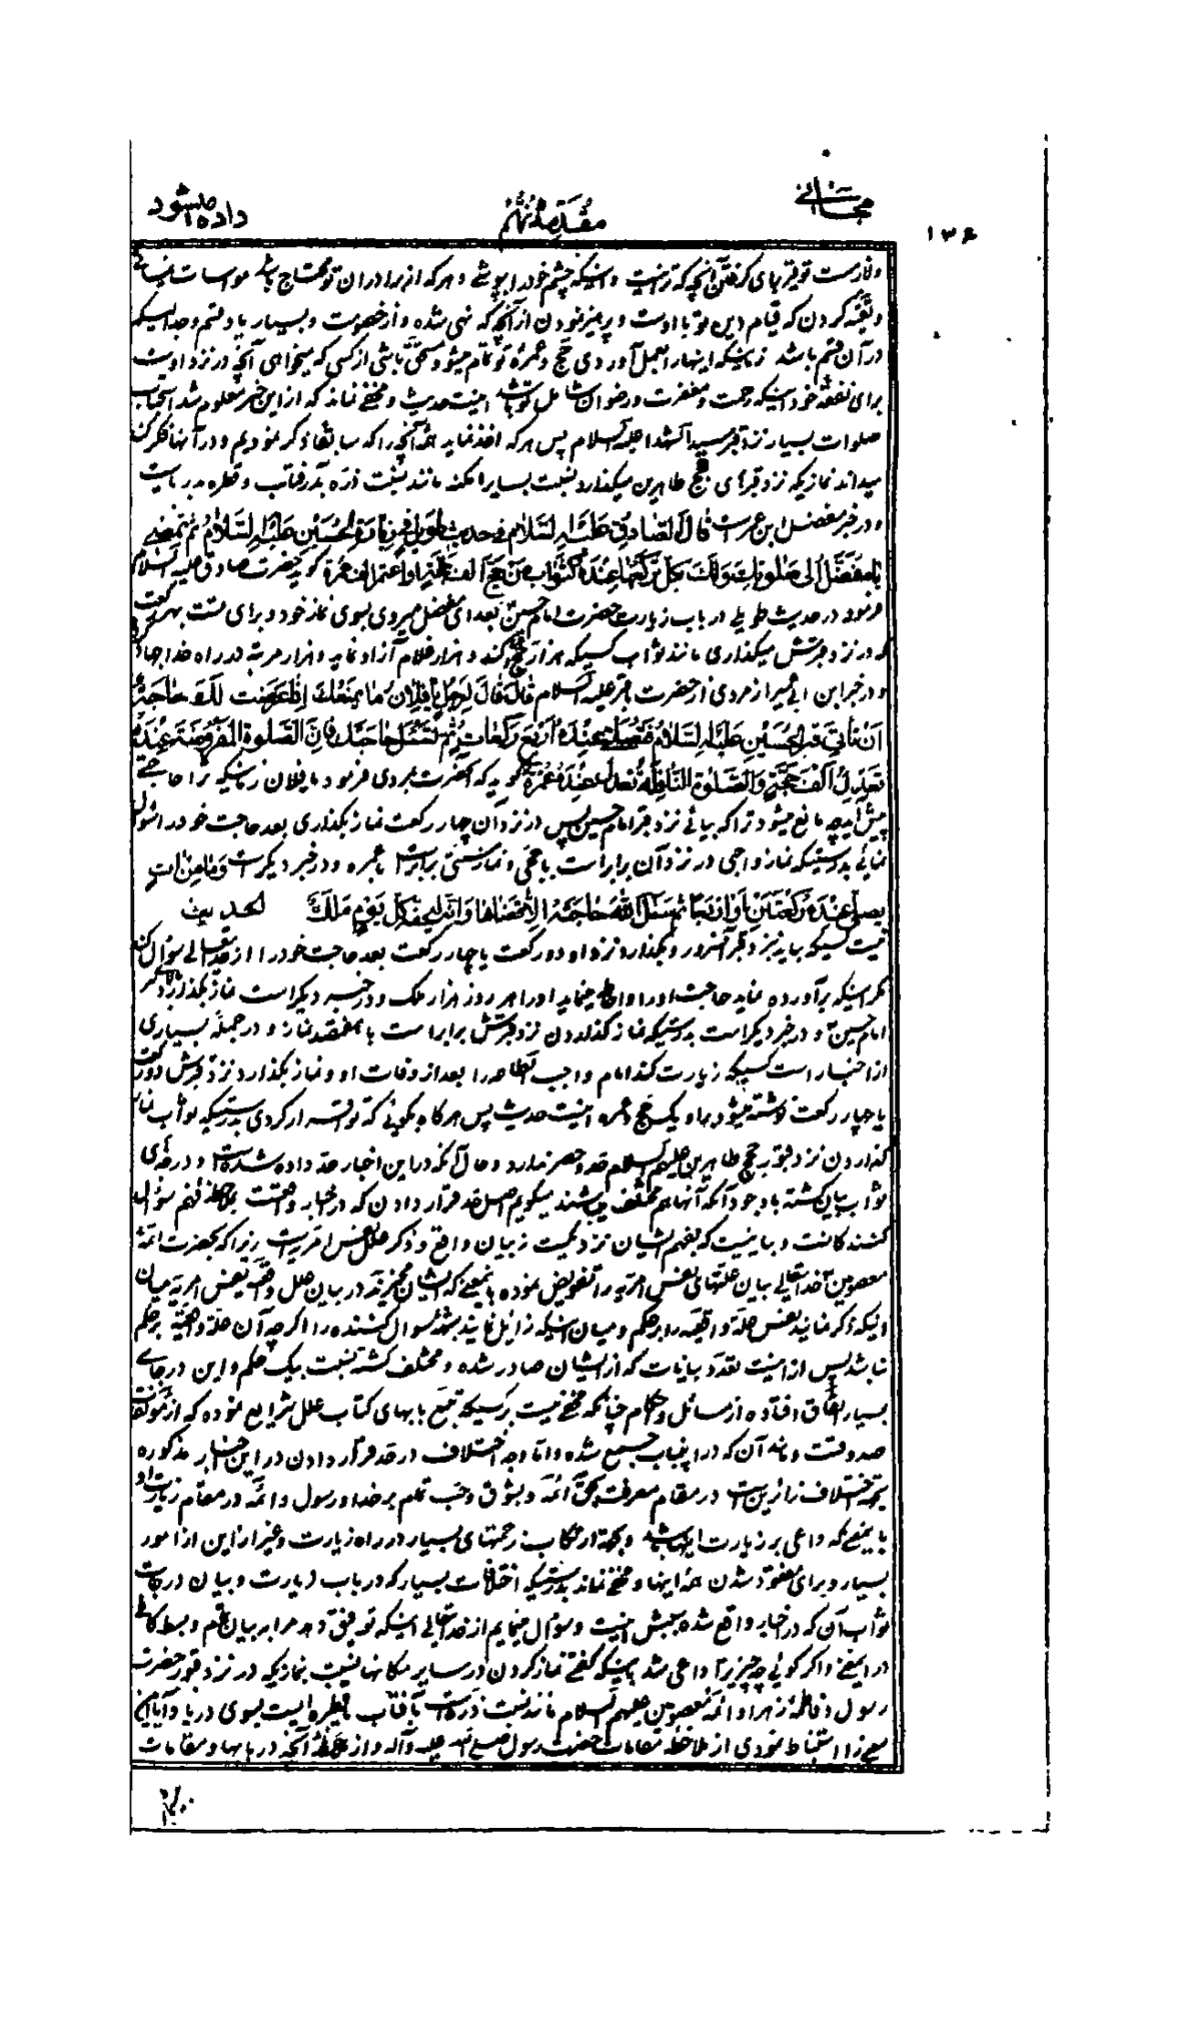 مجانی
مقدمه نهم
داده میشود
۱۳۶
و لازمست توقیر بهای گرفتن آنچه که تر نیست و اینکه چشم خود را بپوشی و هر که از برادران تو محتاج باشد مواسات
و تقیه کردن که قیام دین تو با اوست و پرهیز نمودن از آنچه که نهی شده و از خصومت و بسیار یاد قسم و جدالیکه
در آن قسم باشد زمانیکه اینها را بعمل آوردی حج و عمره تو تمام میشود و مستحق باشی از کسی که میخواهی آنچه در نزد اوست
برای نفقه خود اینکه رحمت و مغفرت و رضوان شامل تو باشد اینست حدیث و مخفی نماند که از این خبر معلوم شد استحباب
صلوات بسیار نزد قبر سید الشهدا علیه السلام پس هر که اخذ نماید همه آنچه را که سابقا ذکر نمودیم و در آنها فکر کند
میداند نمازیکه نزد قبرهای حجج طاهرین میگذارد نسبت بسایر امکنه مانند نسبت ذره بآفتاب و قطره بدریاست
و در خبر مفضل ابن عمر است قال الصادق علیه السلام فی حدیث طویل فی زیارة الحسین علیه السلام ثم تمضی
یا مفضل الی صلوتک ولک بکل رکعة رکعتها عنده کثواب من حج الف حجة واعتمر الف عمرة گوید حضرت صادق علیه السلام
فرمود در حدیث طویلی در باب زیارت حضرت امام حسین بعد ای مفضل میروی بسوی نماز خود و برای تست بهر رکعت
که در نزد قبرش میگذاری مانند ثواب کسیکه هزار حج کند و هزار غلام آزاد نماید و هزار مرتبه در راه خدا جهاد
و در خبر ابن ابی عمیر از مردی از حضرت باقر علیه السلام قال قال لرجل یا فلان ما یمنعک اذا عرضت لک حاجة
ان تاتی قبر الحسین علیه السلام فتصلی عنده اربع رکعات ثم تسئل حاجتک فان الصلوة المفروضة عنده
تعدل الف حجة والصلوة النافلة تعدل عنده عمرة گوید که آنحضرت بمردی فرمود یا فلان زمانیکه ترا حاجتی
پیش آید چه مانع میشود ترا که بیائی نزد قبر امام حسین پس در نزد آن چهار رکعت نماز بگذاری بعد حاجت خود را سؤال
نمائی بدرستیکه نماز واجبی در نزد آن برابر است با حجی و نماز سنتی برابر است با عمره و در خبر دیگر است وما من ات
یصلی عنده رکعتین او اربعا ثم یسئل الله حاجة الا قضاها وانه لیحف کل یوم ملک الحدیث
نیست کسیکه بیاید بنزد قبر آنسرور و بگذارد نزد او دو رکعت یا چهار رکعت بعد حاجت خود را از خدایتعالی سؤال کند
مگر اینکه برآورده نماید حاجت او را و احاطه مینماید او را هر روز هزار ملک و در خبر دیگر است نماز بگذار نزد قبر
امام حسین و در خبر دیگر است بدرستیکه نماز گذاردن نزد قبرش برابر است با هفتصد نماز و در جمله بسیاری
از اخبار است کسیکه زیارت کند امام واجب الطاعه را بعد از وفات او و نماز بگذارد نزد قبرش دو رکعت
یا چهار رکعت نوشته میشود بر او یک حج و عمره اینست حدیث پس هرگاه بگوئی که تو اقرار کردی بدرستیکه ثواب نماز
گذاردن نزد قبور حجج طاهرین علیهم السلام حد و حصر ندارد و حال آنکه در این اخبار حد داده شده است و در خبری
ثواب بیان گشته با وجود آنکه آنها هم مختلف میباشند میگویم اصل حد قرار دادن که در اخبار واقعست بملاحظه فهم سؤال
کنندگانست و بیانیست که بفهم ایشان نزدیکست ز بیان واقع و ذکر علل نفس امریست زیرا که بحضرت ائمه
معصومین خدایتعالی بیان علتهای نفس امریه را تفویض نموده باینمعنی که ایشان مخیرند در بیان علل واقعیه نفس امریه میان
اینکه ذکر نمایند نفس علة واقعیه را بر حکم و میان اینکه زائل نمایند شبهه سؤال کننده را اگر چه آن علة واقعیه بر حکم
نباشد پس از اینست تعدد بیانات که از ایشان صادر شده و مختلف گشته نسبت بیک حکم و این در جای
بسیار اتفاق افتاده از مسائل و احکام چنانکه مخفی نیست بر کسیکه تتبع بابهای کتاب علل شرایع نموده که از مؤلفات
صدوقست و مانند آن که در اینباب جمع شده و اما وجه اختلاف در حد قرار دادن در این اخبار مذکوره
بجهة اختلاف زائرین است در مقام معرفت بحق ائمه و بشوق و حب تام بر خدا و رسول و ائمه در مقام زیارت او
باینمعنی که داعی بر زیارت اینها باشد و بجهة ارتکاب زحمتهای بسیار در راه زیارت و غیر از این از امور
بسیار و برای مفقود شدن همه اینها و مخفی نماند بدرستیکه اختلافات بسیار که در باب زیارت و بیان درجات
ثواب آن که در اخبار واقع شده سببش اینست و سؤال مینمایم از خدایتعالی اینکه توفیق دهد مرا به بیان تام و بسط کامل
در اینمعنی و اگر گوئی چه چیز ترا داعی شد باینکه گفتی نماز کردن در سایر مکانها نسبت بنمازیکه در نزد قبور حضرت
رسول و فاطمه زهرا و ائمه معصومین علیهم السلام مانند نسبت ذره است بآفتاب و قطره ایست بسوی دریا و آیا این
معنی را استنباط نمودی از ملاحظه مقامات حضرت رسول صلی الله علیه وآله و از ملاحظه آنچه در بابها و مقامات